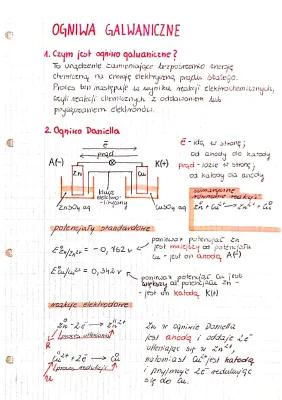 OGNIWA GALWANICZNE
1. Czym jest ogniwo galwaniczne?
To urządzenie zamieniające bezpośrednio energię
chemiczną na energię elektryczną prądu stałego.
Proces ten następuje w wyniku reakcji elektrochemicznych,
czyli reakcji chemicznych z oddawaniem lub
przyjmowaniem elektronów.
2. Ogniwo Daniella
ē
prąd
A(-)
K(+)
Zn
Cu
klucz
elektro-
lityczny
ZnSO₄ aq
CuSO₄ aq
ē - idą w stronę:
od anody do katody
prąd - idzie w stronę:
od katody do anody
sumaryczne
równanie reakcji
Zn + Cu²⁺ → Zn²⁺ + Cu
potencjały standardowe
E°Zn/Zn²⁺ = -0,762 V
ponieważ potencjał Zn
jest mniejszy od potencjału
Cu - jest on anodą A(-)
E°Cu/Cu²⁺ = 0,342 V
ponieważ potencjał Cu jest
większy od potencjału Zn -
jest on katodą K(+)
reakcje elektrodowe
Zn - 2ē → Zn²⁺
proces utleniania
R
Cu²⁺ + 2ē → Cu
proces redukcji
U
Zn w ogniwie Daniella
jest anodą i oddaje 2ē
utleniając się w Zn²⁺,
natomiast Cu²⁺ jest katodą
i przyjmuje 2ē redukując
się do Cu.